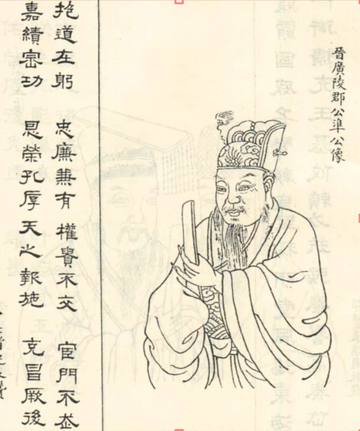 晉廣陵郡公準公像
抱道在躬 忠廉兼有 權貴不交 宦門不
嘉績密功 恩榮孔厚 天之報施 克昌厥後